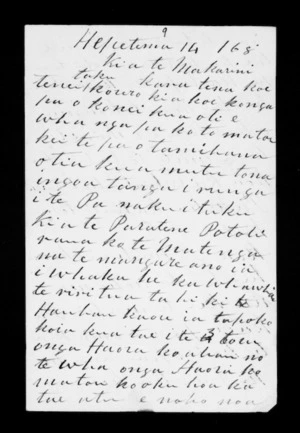 9
Hepetema 14 168
Kia te Makarini
taku hara tena koe
tenei korero kia koe konga
pa o konei kua oti e
wha nga pa ko to matou
kei te pa o tamihana
otia kua mutu tona
ingoa tanga i runga
i te Pa naku i tuku
Kia te Paratene Pototi
raua ko te Matenga
na te mangare ano ia
i whaka he ka whawhai
te riritua ta hi ki te
Hauhau kaore ia tapoko
koia kua tae ite 3 tau
onga Haora ko ahau no
te wha onga Haora ko
matou ko oku hoa ka
tae atu e noho noa